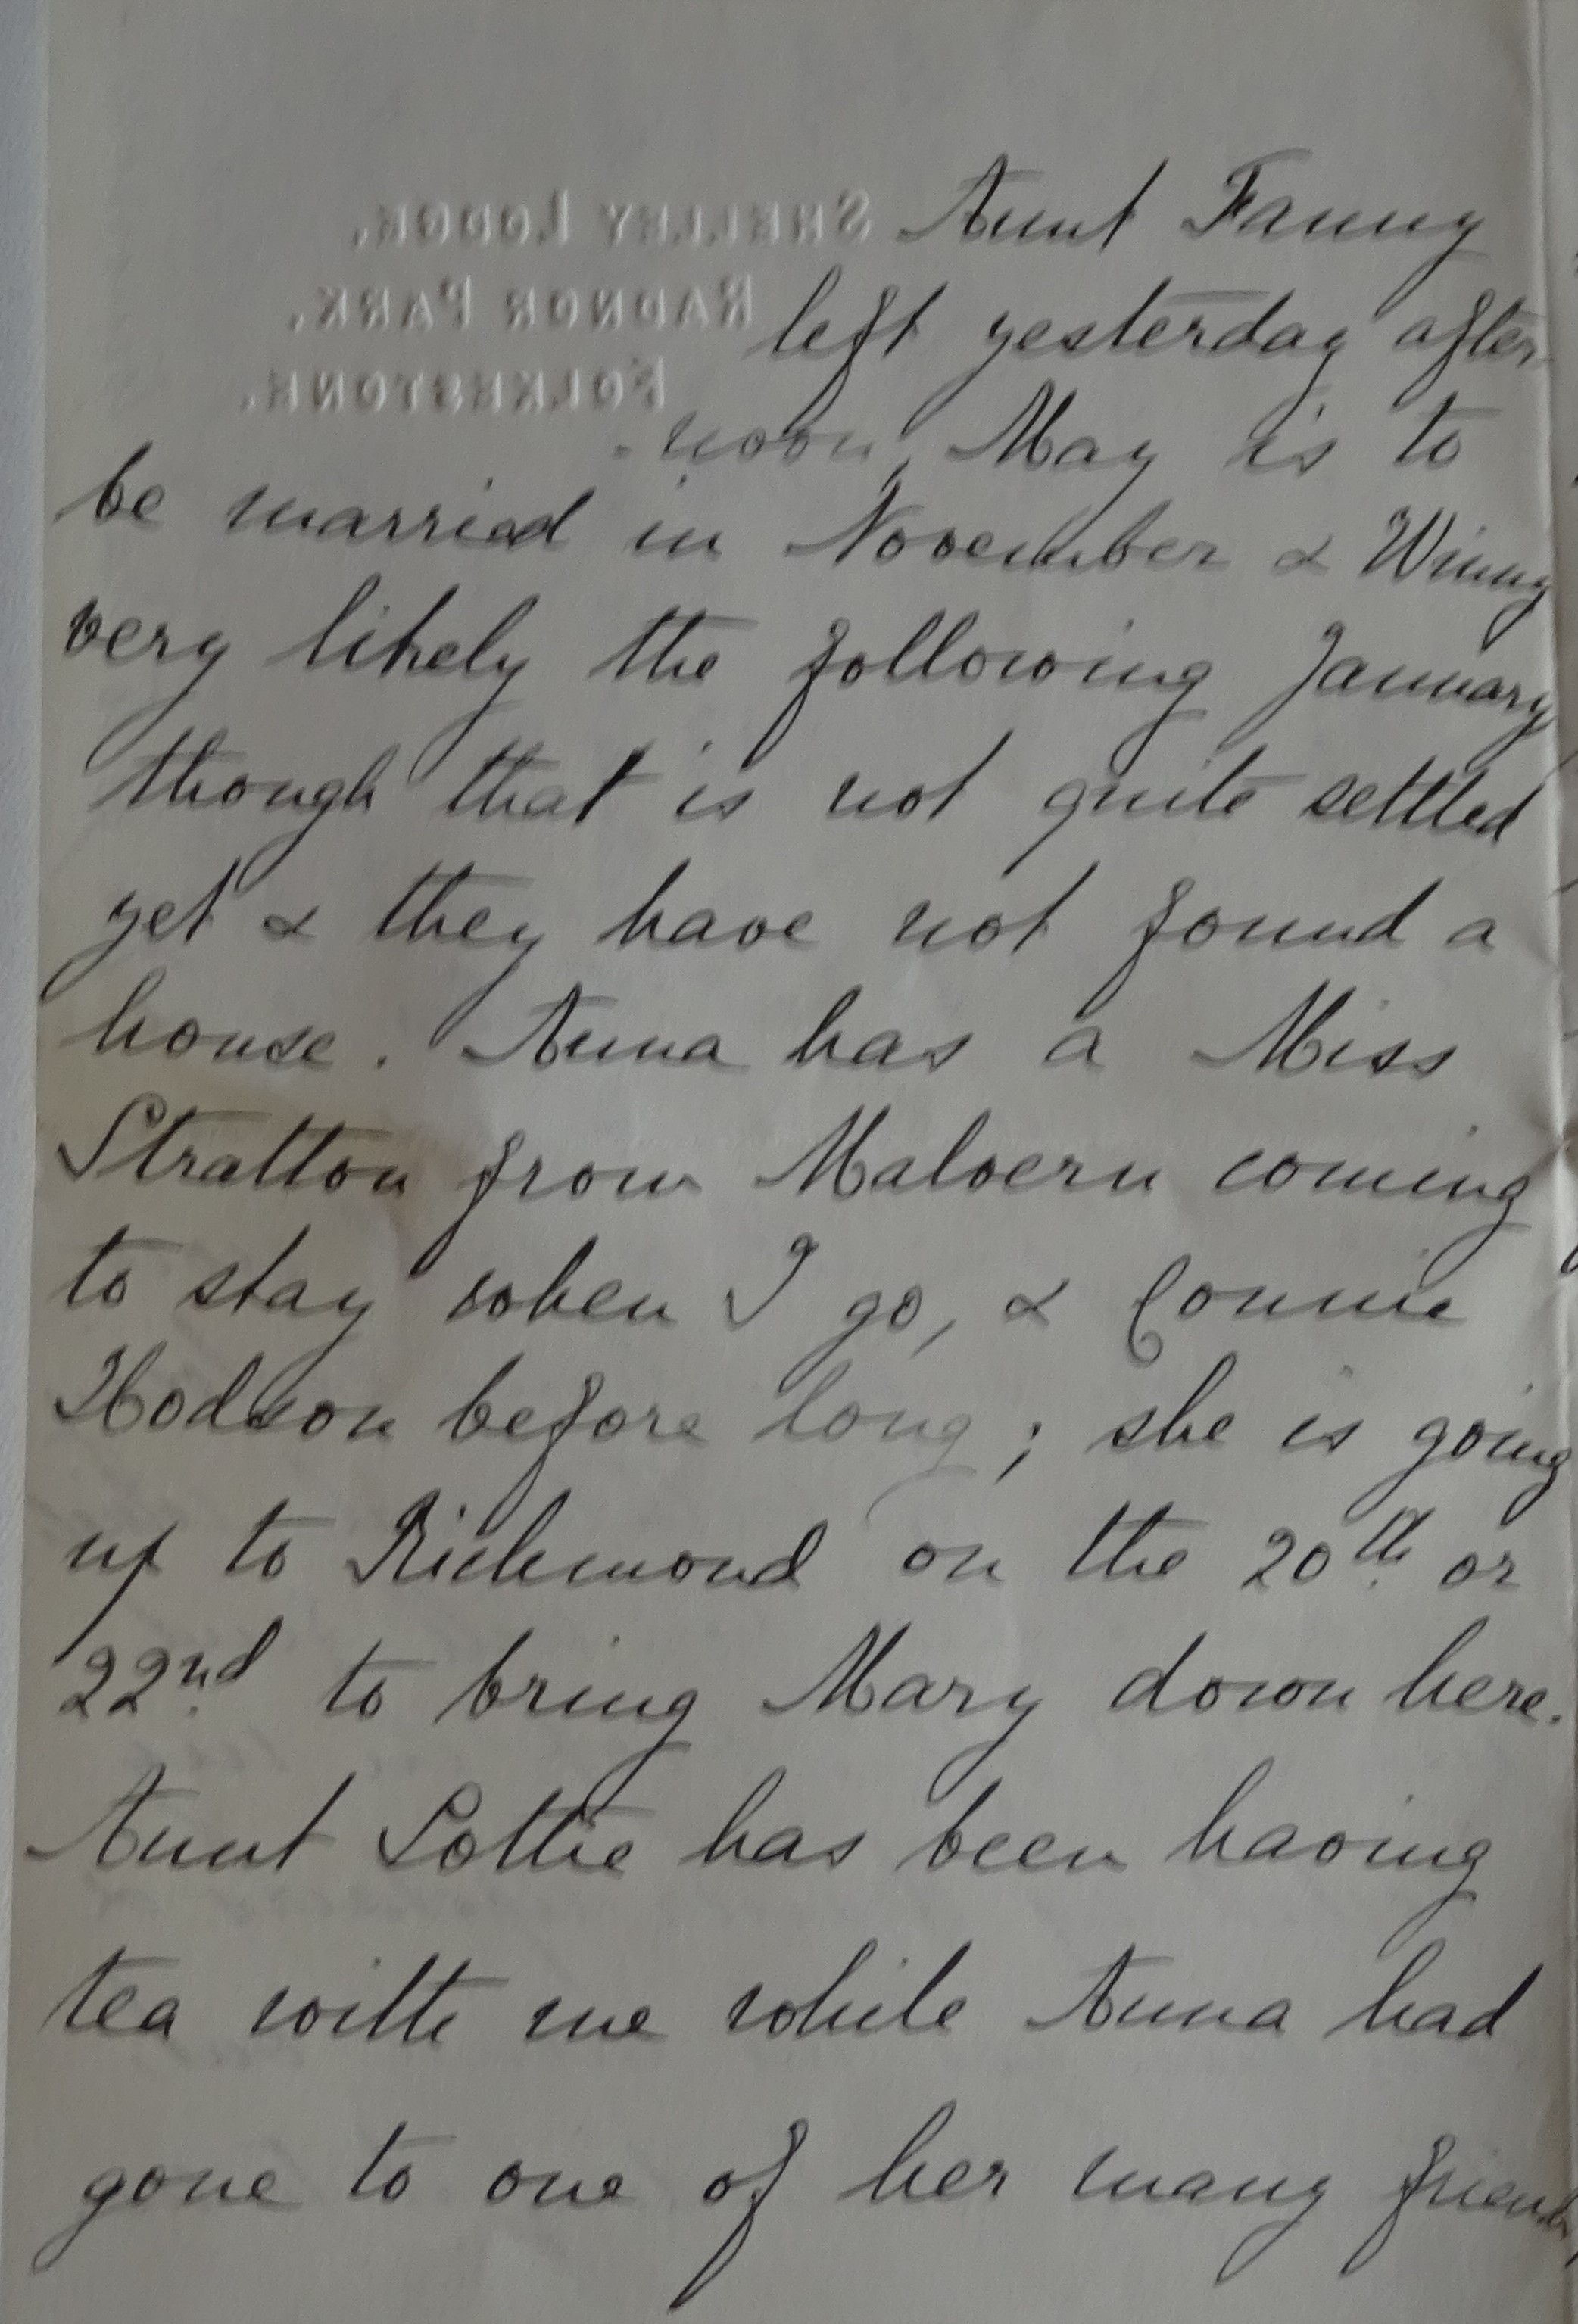 SHELLEY LODGE,
RADNOR PARK,
FOLKESTONE.
Aunt Fanny
left yesterday after-
-noon, May is to
be married in November & Winny
very likely the following January
though that is not quite settled
yet & they have not found a
house. Anna has a Miss
Stratton from Malvern coming
to stay when I go, & Connie
Hodson before long; she is going
up to Richmond on the 20th or
22nd to bring Mary down here.
Aunt Lottie has been having
tea with me while Anna had
gone to one of her many friends,